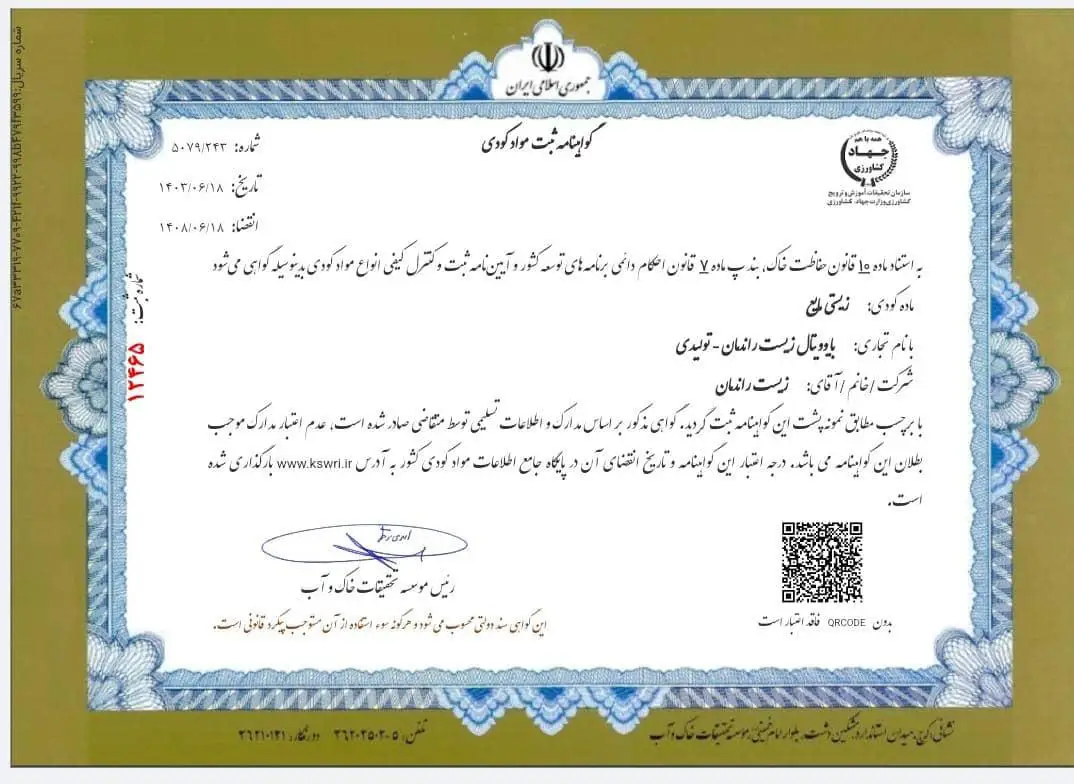 جمهوری اسلامی ایران
همه با هم
جهاد
کشاورزی
سازمان تحقیقات آموزش و ترویج
کشاورزی وزارت جهاد کشاورزی
گواهینامه ثبت مواد کودی
شماره: ۵۰۷۹/۲۴۳
تاریخ: ۱۴۰۳/۰۶/۱۸
انقضا: ۱۴۰۸/۰۶/۱۸
به استناد ماده ۱۰ قانون حفاظت خاک، بند پ ماده ۷ قانون احکام دائمی برنامه های توسعه کشور و آیین نامه ثبت و کنترل کیفی انواع مواد کودی بدینوسیله گواهی می شود
ماده کودی: زیستی مایع
با نام تجاری: بایوویتال زیست راندمان - تولیدی
شرکت / خانم / آقای: زیست راندمان
با برچسب مطابق نمونه پشت این گواهینامه ثبت گردید. گواهی مذکور بر اساس مدارک و اطلاعات تسلیمی توسط متقاضی صادر شده است، عدم اعتبار مدارک موجب
بطلان این گواهینامه می باشد. درجه اعتبار این گواهینامه و تاریخ انقضای آن در پایگاه جامع اطلاعات مواد کودی کشور به آدرس www.kswri.ir بارگذاری شده
است.
شماره ثبت: ۱۲۴۶۵
رئیس موسسه تحقیقات خاک و آب
بدون QRCODE فاقد اعتبار است
این گواهی سند دولتی محسوب می شود و هرگونه سوء استفاده از آن مستوجب پیگرد قانونی است.
نشانی: کرج، میدان استاندارد، مشکین دشت، بلوار امام خمینی، موسسه تحقیقات خاک و آب
تلفن: ۵-۳۶۲۰۲۵۰۲ دورنگار: ۳۶۲۱۰۱۲۱
شماره سریال: